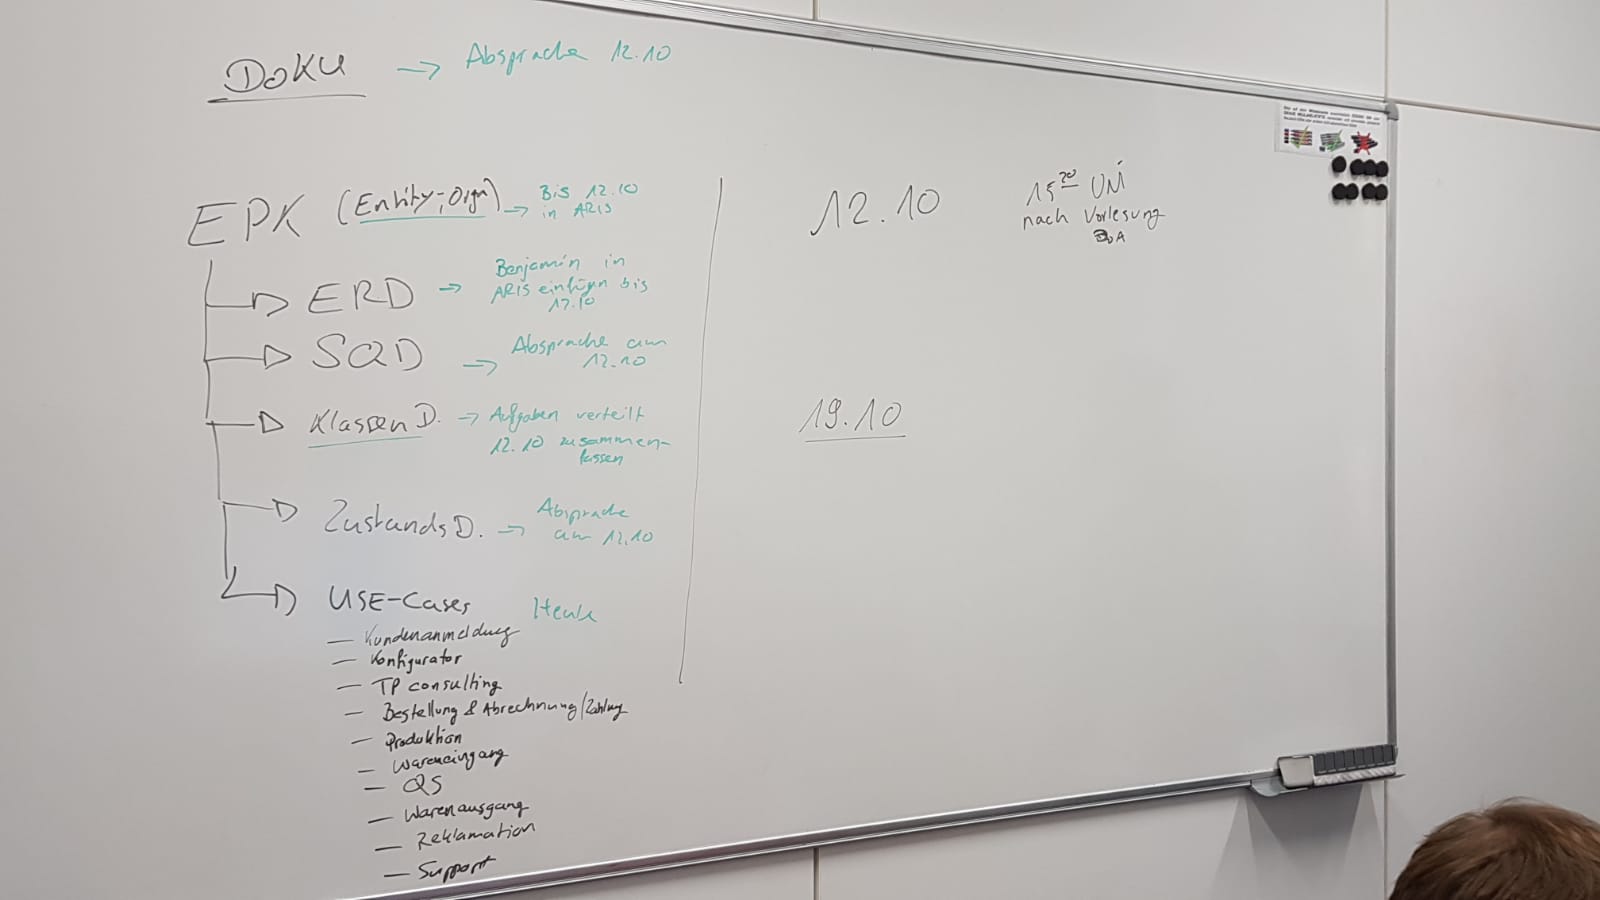 DOKU → Absprache 12.10
EPK (Entity-, Orga) → Bis 12.10
in ARIS
ERD → Benjamin in
ARIS einfügen bis
12.10
SQD → Absprache am
12.10
Klassen D. → Aufgaben verteilt
12.10 zusammen-
fassen
Zustands D. → Absprache
am 12.10
USE-Cases Heute
– Kundenanmeldung
– Konfigurator
– TP consulting
– Bestellung & Abrechnung/Zahlung
– Produktion
– Wareneingang
– QS
– Warenausgang
– Reklamation
– Support
12.10
UNI
nach Vorlesung
19.10